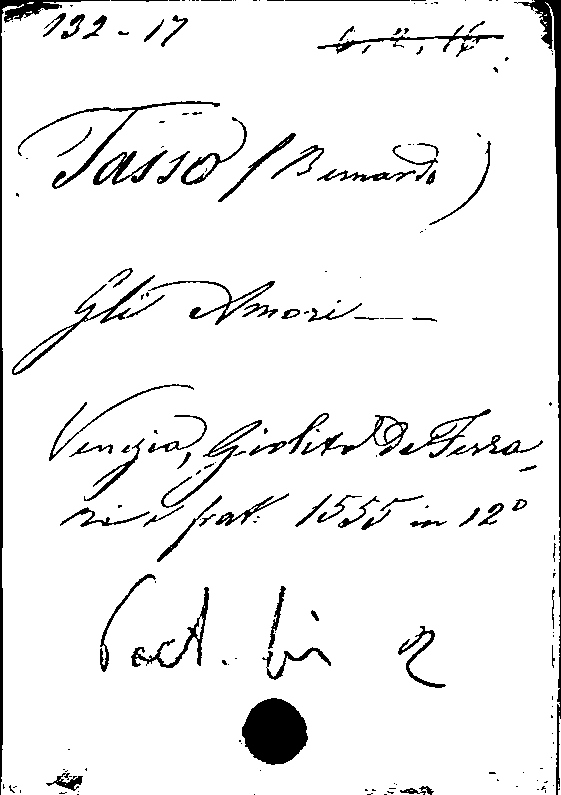 132-17
6, 2, 16
Tasso (Bernardo)
Gli Amori ——
Venezia, Giolito De Ferra-
ri e frat. 1555 in 12°
Poet. lir 2